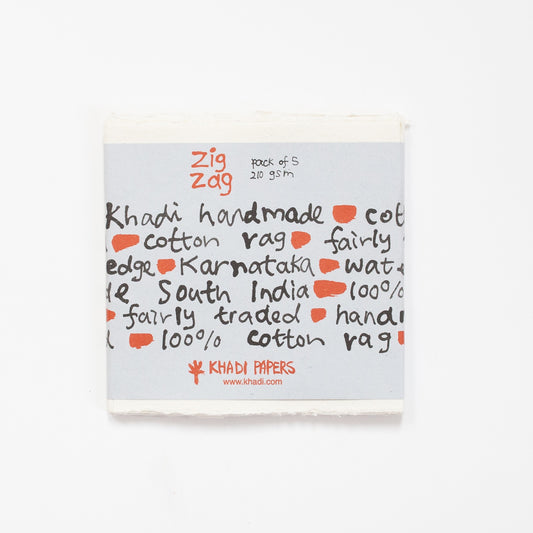 Zig
Zag
pack of 5
210 gsm
Khadi handmade cot
cotton rag fairly
edge Karnataka wat
de South India 100%
fairly traded handi
100% cotton rag
KHADI PAPERS
www.khadi.com